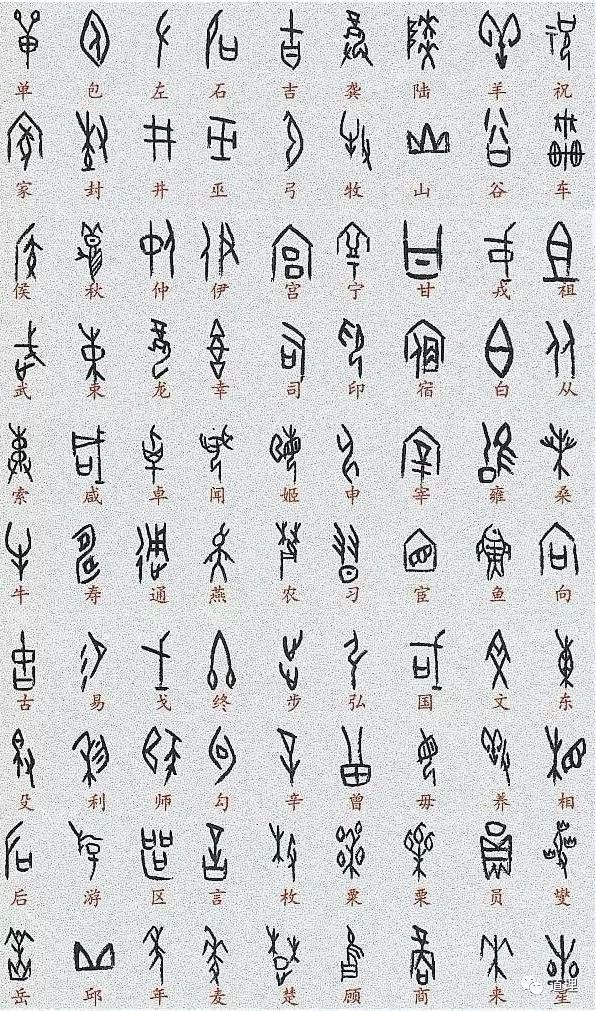 单 包 左 石 吉 龚 陆 羊 祝
家 封 井 巫 弓 牧 山 谷 车
侯 秋 仲 伊 宫 宁 甘 戎 祖
武 束 龙 幸 司 印 宿 白 从
索 咸 卓 闻 姬 申 宰 雍 桑
牛 寿 通 燕 农 习 宦 鱼 向
古 易 戈 终 步 弘 国 文 东
殳 利 师 勾 辛 曾 毋 养 相
后 游 区 言 枚 粟 栗 员 燮
岳 邱 年 麦 楚 顾 商 来 星
道理